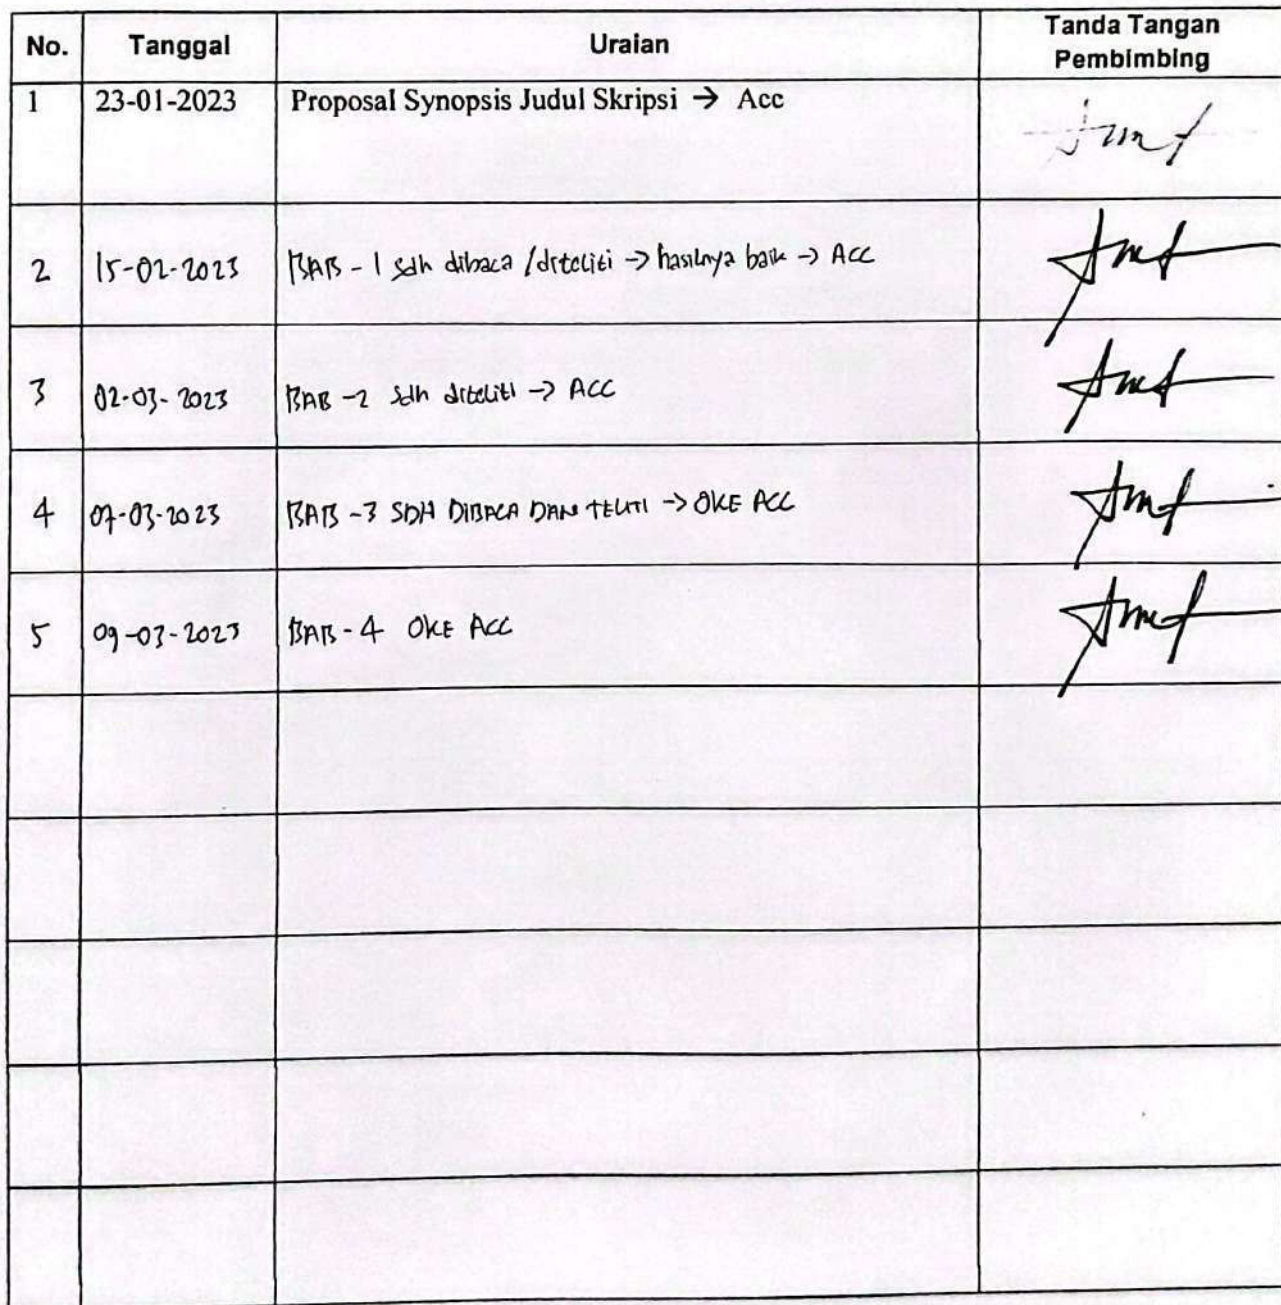 No. Tanggal Uraian Tanda Tangan Pembimbing
1 23-01-2023 Proposal Synopsis Judul Skripsi → Acc
2 15-02-2023 BAB - 1 sdh dibaca / diteliti → hasilnya baik → ACC
3 02-03-2023 BAB - 2 sdh diteliti → ACC
4 07-03-2023 BAB - 3 SDH DIBACA DAN TELITI → OKE ACC
5 09-03-2023 BAB - 4 OKE ACC